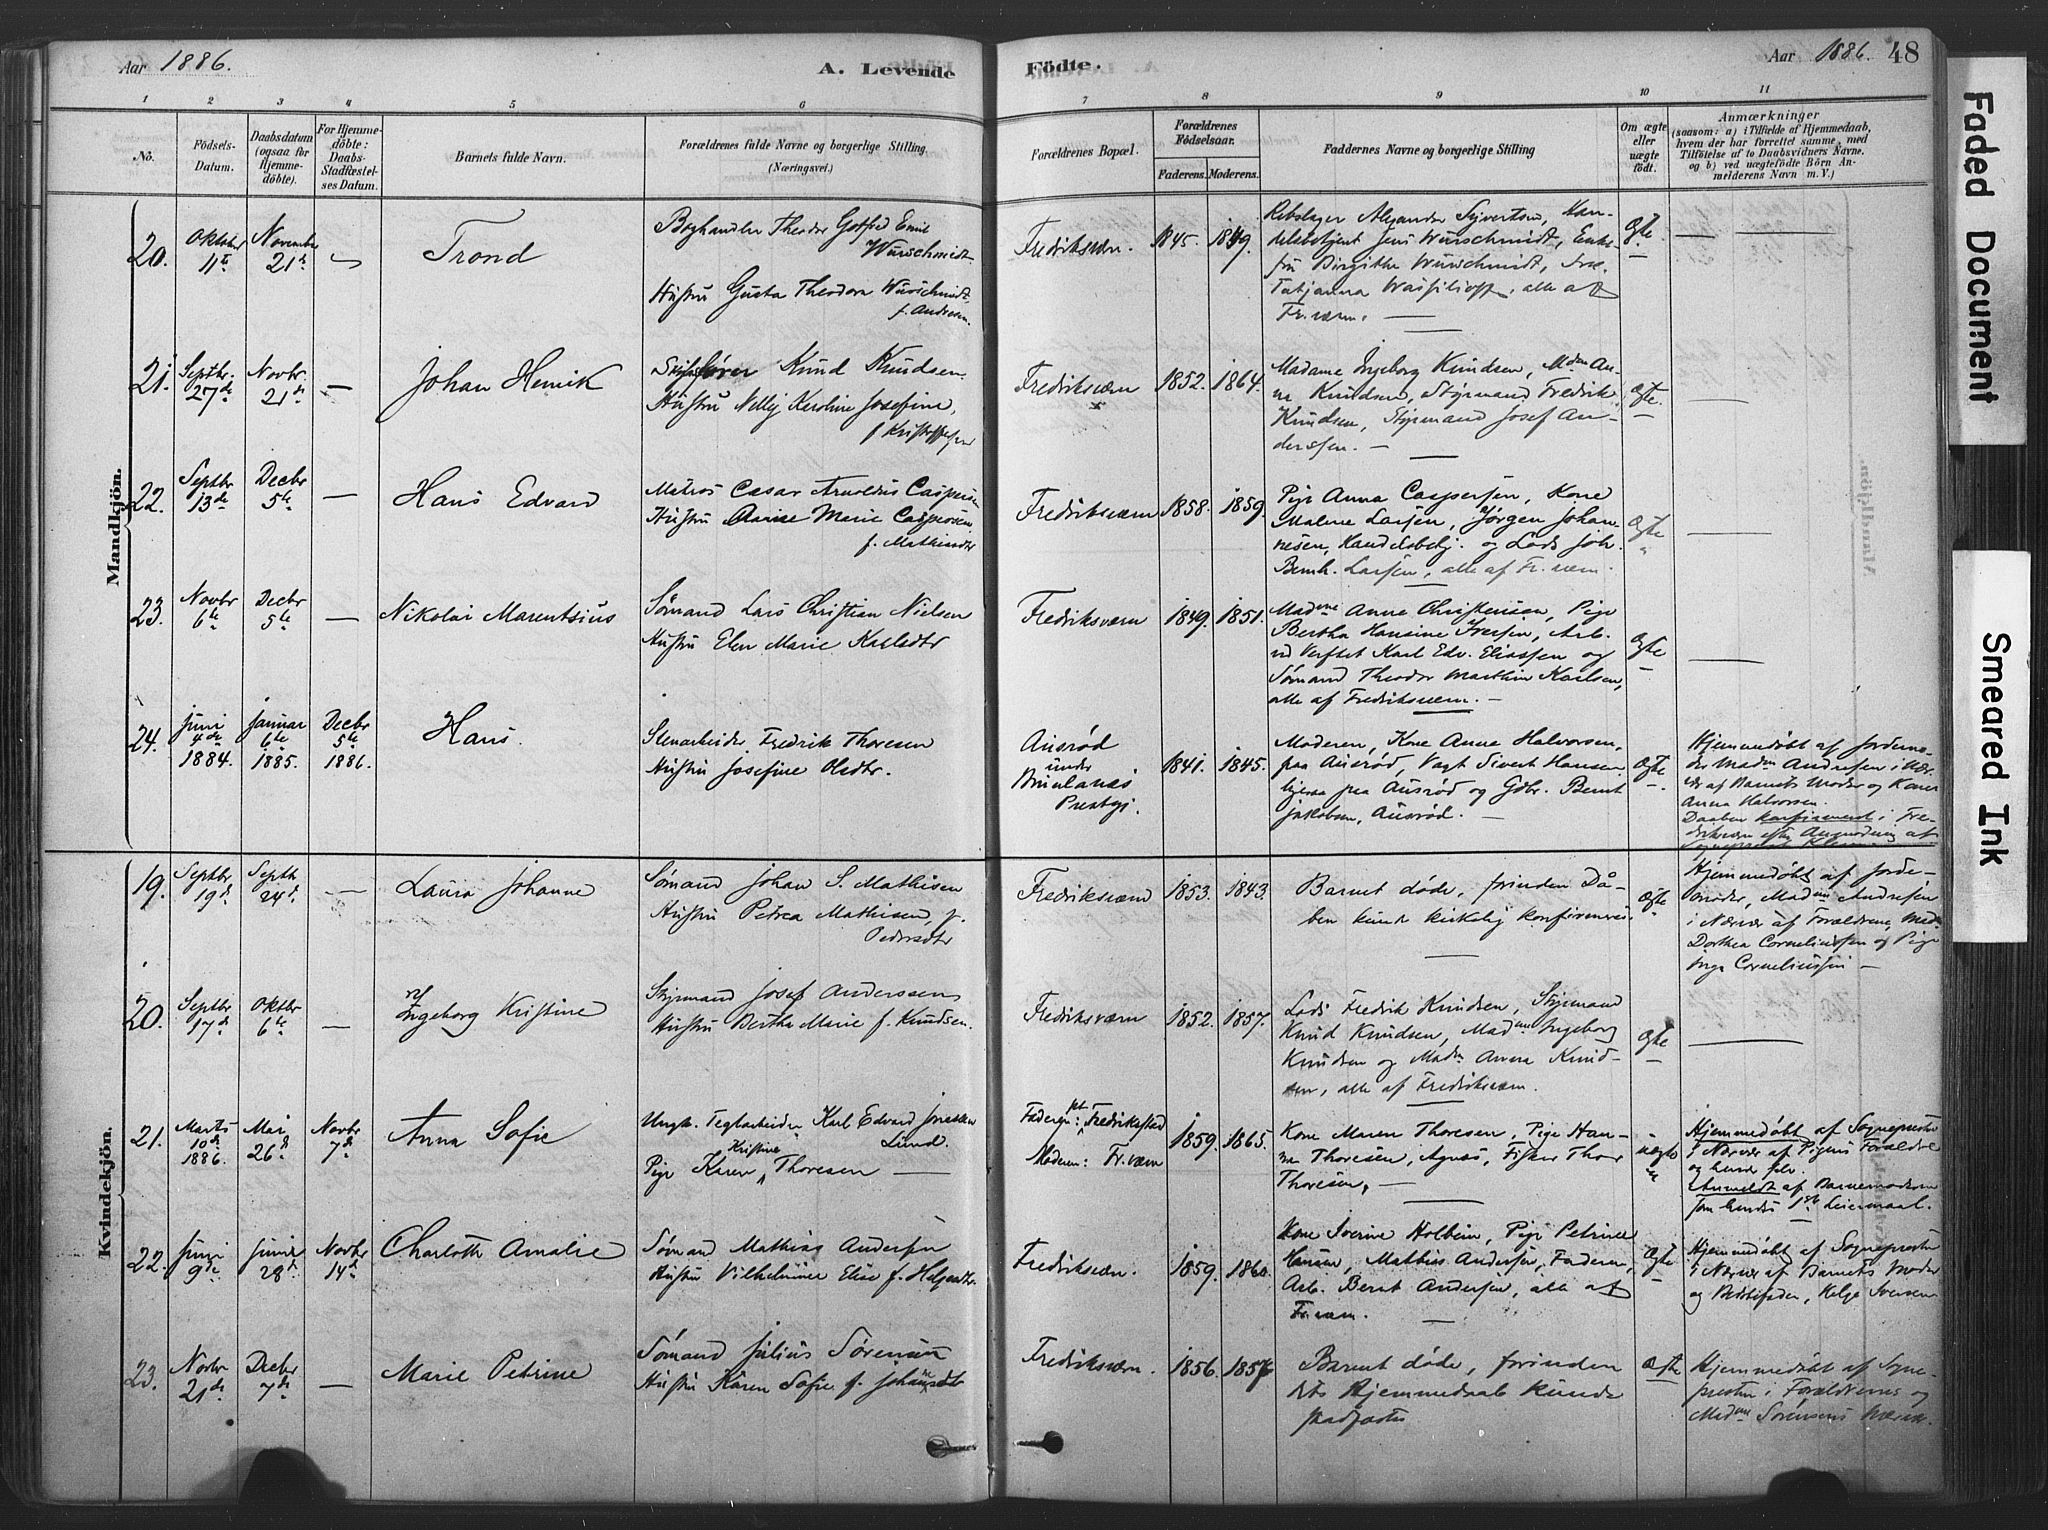 Aar 1886.
A. Levende
Födte.
Aar 1886.
48
1 2 3 4 5 6 7 8 9 10 11
No.
Födsels-
Datum.
Daabsdatum
(ogsaa for
Hjemme-
döbte).
For Hjemme-
döbte:
Daabs-
Stadfæstel-
ses Datum.
Barnets fulde Navn.
Forældrenes fulde Navne og borgerlige Stilling
(Næringsvei.)
Forældrenes Bopæl.
Forældrenes
Födselsaar.
Faderens. Moderens.
Faddernes Navne og borgerlige Stilling
Om ægte
eller
uægte
födt.
Anmærkninger
(saasom: a) i Tilfælde af Hjemmedaab,
hvem der har forrettet samme, med
Tilföielse af to Daabsvidners Navne,
og b) ved uægtefödte Börn An-
melderens Navn m. V.)
Mandkjön.
20.
Oktober
11te
November
21de
Trond
Boghandler Theodor Gotfred Emil
Wurschmidt.
Hustru Gusta Theodora Wurschmidt
f. Andresen.
Fredriksværn.
1845. 1849.
Rebslager Alexander Syvertsen, Han-
delsbetjent Jens Wurschmidt, Enke-
fru Birgitte Wurschmidt, Frk.
Tatjanna Wassilioff, alle af
Fr.værn. —
Ægte
21.
Septbr.
27de
Novbr.
21de
—
Johan Henrik
Skibsfører Knud Knudsen
Hustru Nelly Karoline Josefine,
f Kristoffersen
Fredriksværn
1852. 1864.
Madame Ingeborg Knudsen, Mdm An-
na Knudsen, Styrmand Fredrik
Knudsen, Styrmand Josef An-
derssen. —
Ægte.
22.
Septbr
13de
Decbr
5te
—
Hans Edvard
Matros Cæsar Arnoldus Caspersen
Hustru Marie Caspersen
f. Mathisdtr
Fredriksværn
1858. 1859.
Pige Anna Caspersen, Kone
Malene Larsen, Jørgen Johan-
nesen, Handelsbetj. og Lods Joh.
Bernh. Larsen, alle af Fr.værn.
Ægte
23.
Novbr
6te
Decbr
5te
—
Nikolai Marentsius
Sømand Lars Christian Nielsen
Hustru Elen Marie Karlsdtr
Fredriksværn
1849. 1851.
Madme Anne Christensen, Pige
Bertha Hansine Iversen, Arb.
vd Verftet Karl Edv. Eliassen og
Sømand Theodor Marthin Karlsen,
alle af Fredriksværn. —
Ægte
24.
Juni
4de
1884.
Januar
6te
1885.
Decbr
5te
1886.
Hans.
Stenarbeider Fredrik Thoresen
Hustru Josefine Olsdtr.
Ausrød
under
Brunlanæs
Prestegj.
1841. 1845.
Moderen, Kone Anne Halvorsen,
paa Ausrød, Vagt Sivert Hansen
ligesaa paa Ausrød og Gdbr. Bernt
Jakobsen, Ausrød. —
Ægte
Hjemmedøbt af Jordemo-
der Madm Andresen i Nær-
vær af Barnets Moder og Kone
Anna Halvorsen.
Daaben konfirmeret i Fre-
driksværn efter Anmodning af
Sognepræst
Kvindekjön.
19.
Septbr
19de
Septb
24de
—
Laura Johanne
Sømand Johan S. Mathisen
Hustru Petrea Mathisen, f.
Pedersdtr
Fredriksværn
1853. 1843.
Barnet døde, forinden Då-
ben kunde kirkelig konfirmeres
Ægte
Hjemmedøbt af Jorde-
moder, Madm Andresen
i Nærvær af Forældrene, Madm
Dorthea Corneliussen og Pige
Inga Corneliussen —
20.
Septbr
17de
Oktbr
6te
—
Ingeborg Kristine
Styrmand Josef Anderssen
Hustru Bertha Marie f. Knudsen.
Fredriksværn
1852. 1857.
Lods Fredrik Knudsen, Styrmand
Knud Knudsen, Madm Ingeborg
Knudsen og Madm Anna Knud-
sen, alle af Fredriksværn.
Ægte
21.
Marts
10de
1886.
Mai
26de
Novbr
7de
Anna Sofie
Ungk. Teglarbeider Karl Edvard Jonassen
Lund.
Pige Karen Kristine Thoresen —
Faderen: pt Fredrikstad
Moderen: Fr.værn
1859. 1865.
Kone Maren Thoresen, Pige Han-
na Thoresen, Agnæs, Fisker Thor
Thoresen, —
uægte
Hjemmedøbt af Sognepresten
i Nærvær af Pigens Forældre
og hende selv.
Anmeldt af Barnemoderen
som hendes 1ste Leiermaal.
22.
Juni
9de
Juni
28de
Novbr
14de
Charlotte Amalie
Sømand Mathias Andersen
Hustru Vilhelmine Elise f. Helgesdtr.
Fredriksværn.
1859. 1860.
Kone Iverine Holbein, Pige Petrine
Hansen, Mathias Andersen, Faderen,
Arb. Bernt Andersen, alle af
Fr.værn.
Ægte
Hjemmedøbt af Sognepresten
i Nærvær af Barnets Moder
og Bedstefader, Helge Iversen
23.
Novbr
21de
Decbr
7de
—
Marie Petrine
Sømand Julius Sørensen
Hustru Karen Sofie f. Johannsdtr
Fredriksværn.
1856. 1857
Barnet døde, forinden
dets Hjemmedaab kunde
stadfæstes
Ægte
Hjemmedøbt af Sogne-
presten i Forældrenes og
Madm Sørensens Nærvær.
Faded Document
Smeared Ink